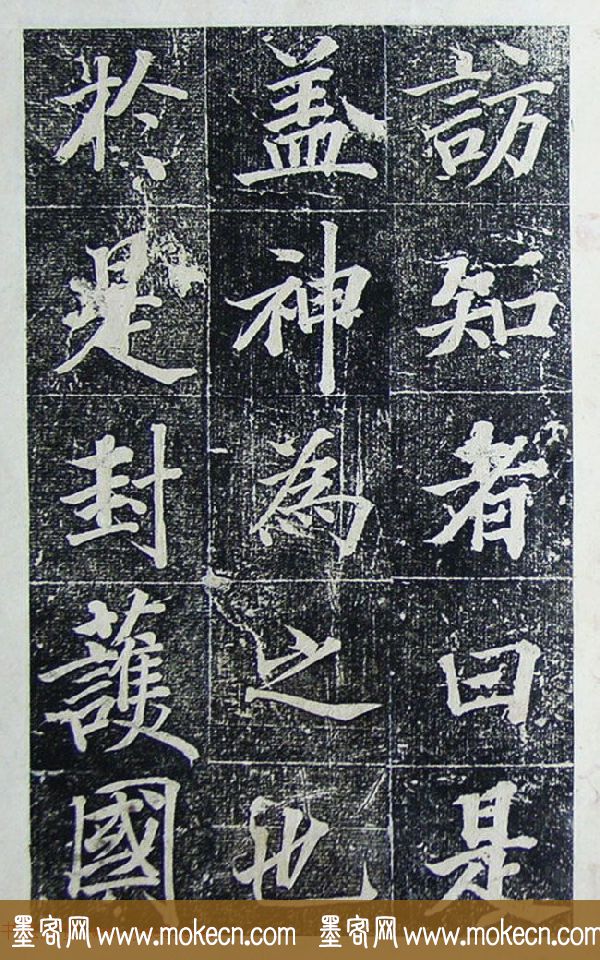 訪知者曰是
盖神為之也
於是封護國
墨客网 www.mokecn.com 墨客网 www.mokecn.com